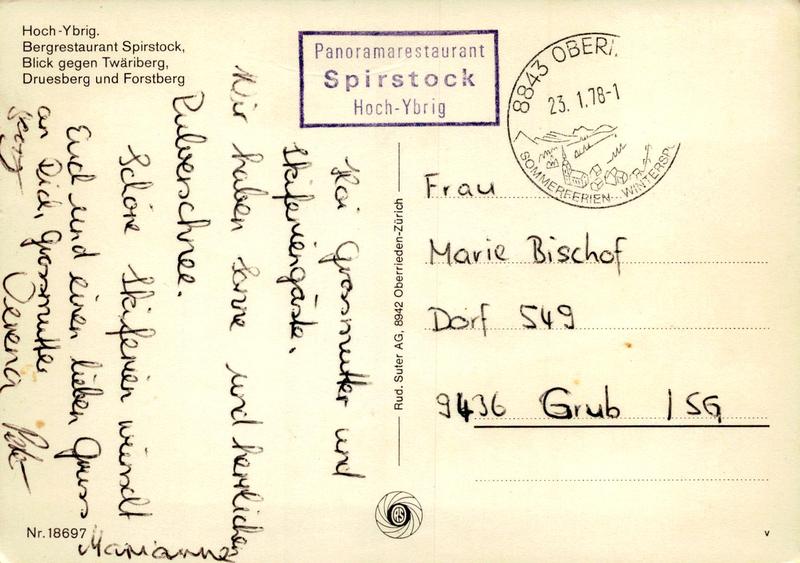 Hoch-Ybrig.
Bergrestaurant Spirstock,
Blick gegen Twäriberg,
Druesberg und Forstberg
Panoramarestaurant
Spirstock
Hoch-Ybrig
8843 OBERI
23.1.78-1
SOMMERFERIEN WINTERSP
Hoi Grossmutter und
Skiferiengäste.
Wir haben Sonne und herrlichen
Pulverschnee.
Schöne Skiferien wünscht
Euch und einen lieben Gruss
an Dich, Grossmutter
Verena
Marianne
Rud. Suter AG, 8942 Oberrieden-Zürich
Frau
Marie Bischof
Dorf 549
9436 Grub / SG
Nr. 18697
v